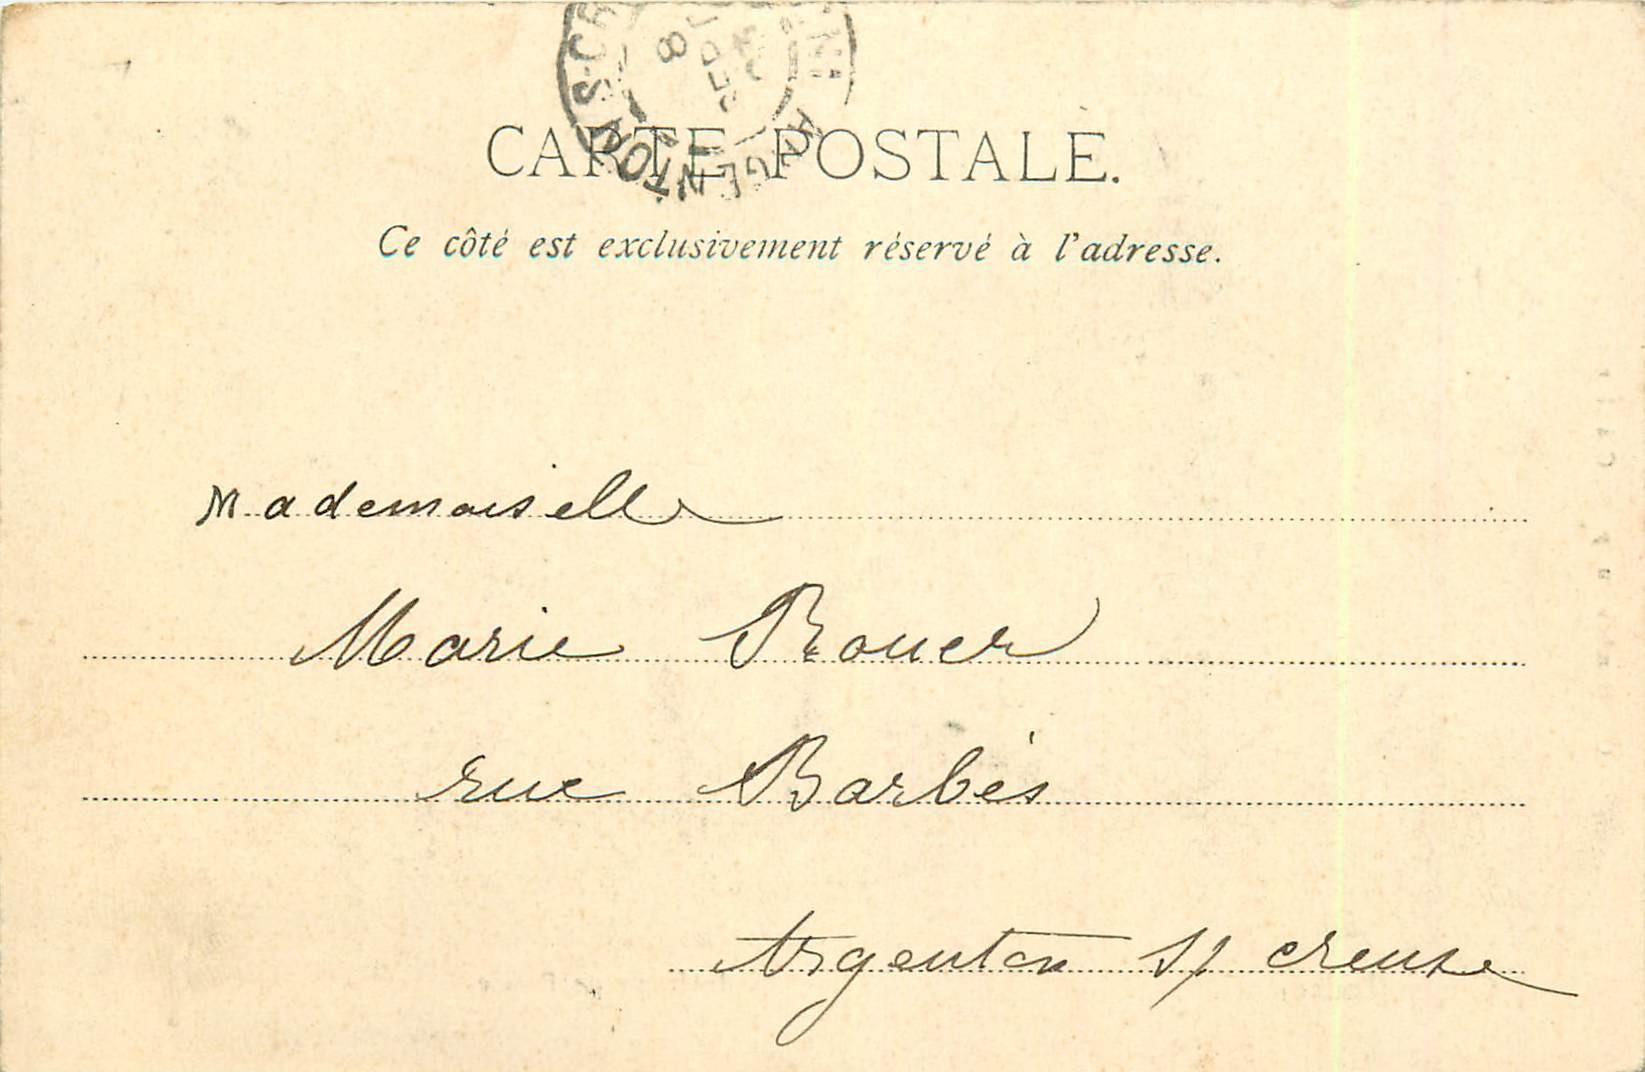 ARGENTON-S-CR
8
CARTE POSTALE.
Ce côté est exclusivement réservé à l'adresse.
Mademoiselle
Marie Rouer
rue Barbès
Argenton s/ creuse